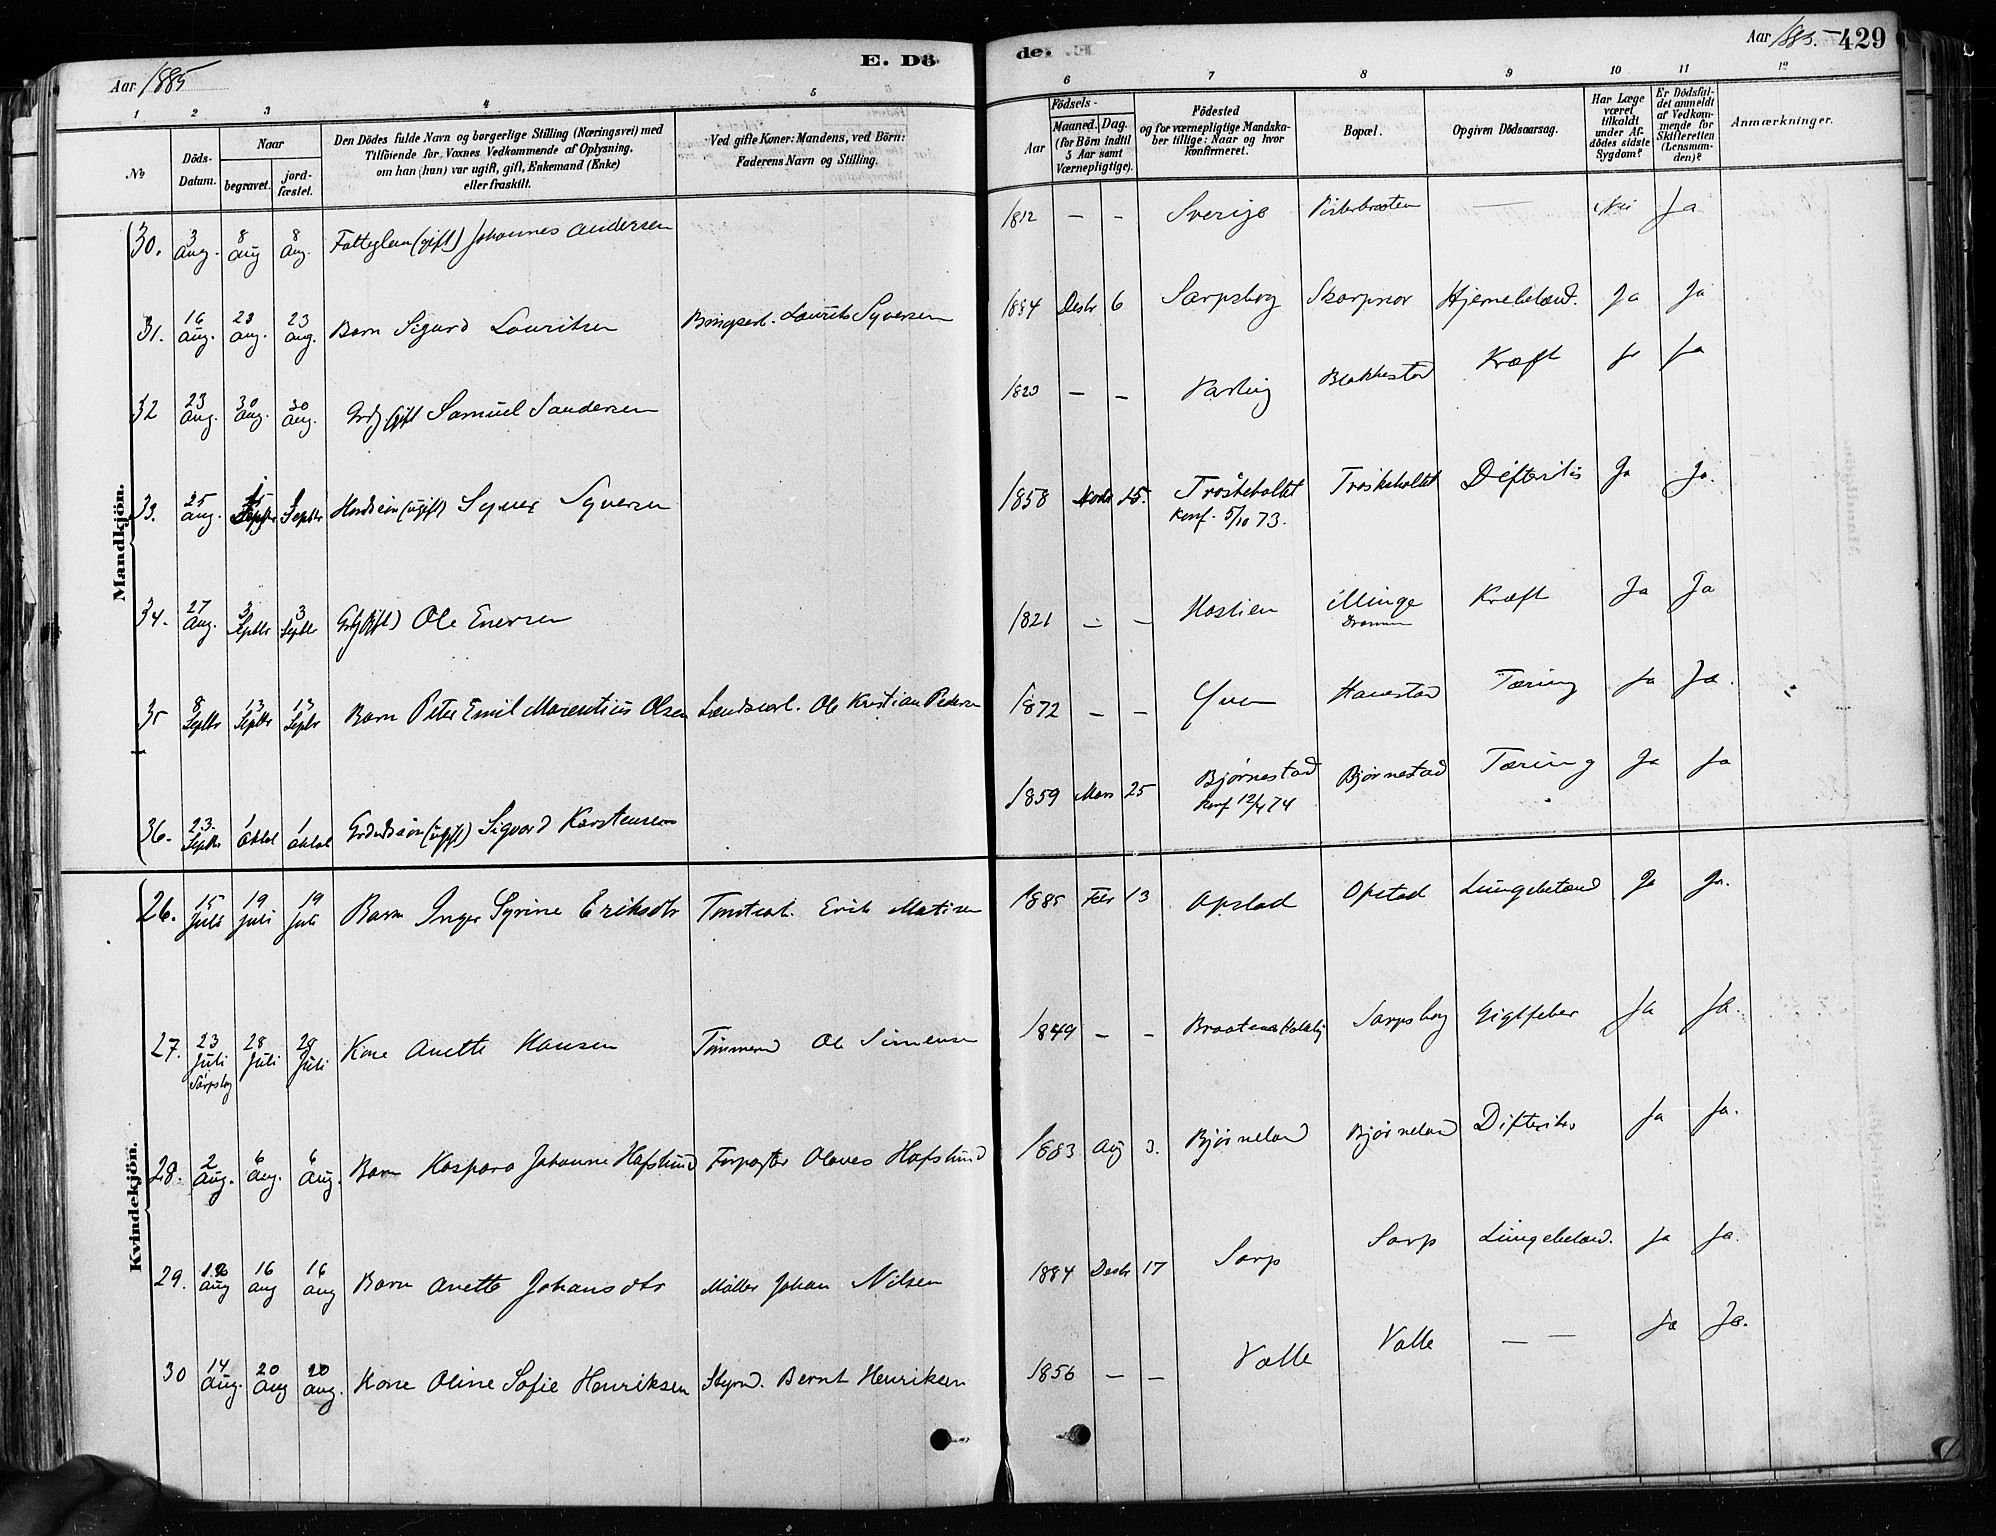 Aar 1885
E. Dö
de.
Aar 1885.
429
1 2 3 4 5 6 7 8 9 10 11 12
No
Döds-Datum.
Naar
begravet.
jordfæstet.
Den Dödes fulde Navn og borgerlige Stilling (Næringsvei) med
Tilföiende for Voxnes Vedkommende af Oplysning,
om han (hun) var ugift, gift, Enkemand (Enke)
eller fraskilt.
Ved gifte Koner: Mandens, ved Börn:
Faderens Navn og Stilling.
Födsels-
Aar
Maaned. Dag.
(for Börn indtil
5 Aar samt
Værnepligtige).
Födested
og for værnepligtige Mandska-
ber tillige: Naar og hvor
konfirmeret.
Bopæl.
Opgiven Dödsaarsag.
Har Læge
været
tilkaldt
under Af-
dödes sidste
Sygdom?
Er Dödsfal-
det anmeldt
af Vedkom-
mende for
Skifteretten
(Lensman-
den)?
Anmærkninger.
Mandkjön.
30. 3 Aug. 8 Aug 8 Aug. (gift) Johannes Andersen 1812 — - Sverige — Nei Ja
31. 16 Aug. 23 Aug. 23 Aug. Barn Sigurd Lauritsen Laurits Syversen 1884 Desbr 6 Sarpsborg Skarpnor Hjernebetænd. Ja Ja
32 23 Aug. 30 Aug. 30 Aug. Grdj gift Samuel Sandersen 1820 — - Varteig Blakkestad Kræft Ja Ja
33. 25 Aug. 1 Septbr 1 Septbr (ugift) Syver Syversen 1858 Novbr 15. Trøskeholtet Trøskeholtet Difteritis Ja Ja.
Konf. 5/10 73.
34. 27 Aug. 3 Septbr 3 Septbr Grdj (gift) Ole Enersen 1821 — — Hostien Minge Kræft Ja Ja
35 8 Septbr 13 Septbr 13 Septbr Barn Peter Emil Marentius Olsen Ole Kristian Pedersen 1872 — — Yven Hanestad Tæring Ja Ja.
36. 23. Septbr 1 Oktob 1 Oktob (ugift) Sigvard Karstensen 1859 Mars 25 Bjørnestad Bjørnestad Tæring Ja Ja
Konf 12/4 74
Kvindekjön.
26. 15 Juli 19 Juli 19 Juli Barn Inger Syrine Eriksdtr Tomtearb. Erik Matisen 1885 Febr 13 Opstad Opstad Lungebetænd Ja Ja.
27. 23 Juli 28 Juli 28 Juli Kone Anette Hansen Tømmerm Ole Simensen 1849 — - Sarpsborg Gigtfeber Ja Ja.
Sarpsborg
28. 2 Aug. 6 Aug. 6 Aug. Barn Kaspara Johanne Hafslund Forpagter Olaves Hafslund 1883 Aug 3. Bjørneland Bjørneland Difteritis Ja Ja.
29. 12 Aug 16 Aug 16 Aug Barn Anette Johansdtr Møller Johan Nilsen 1884 Desbr 17 Sarp Sarp Lungebetænd. Ja Ja.
30 14 Aug. 20 Aug 20 Aug. Kone Oline Sofie Henriksen Styrm. Bernt Henriksen 1856 — — Valle Valle — — Ja Ja.